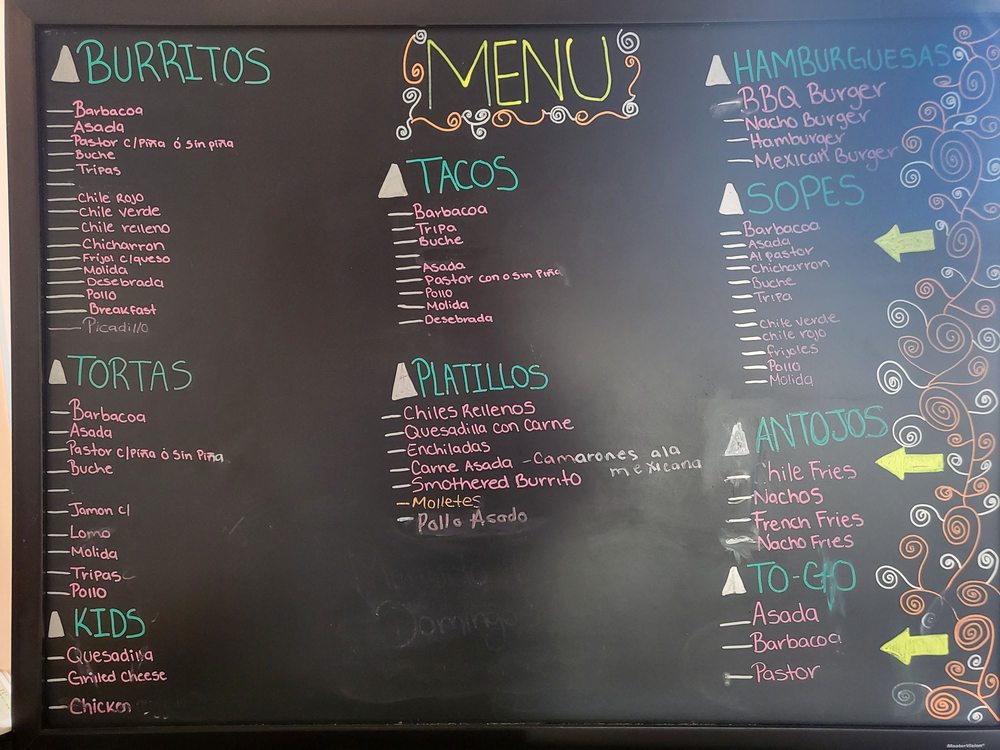 BURRITOS
Barbacoa
Asada
Pastor c/Piña ó Sin piña
Buche
Tripas
Chile Rojo
Chile verde
Chile relleno
Chicharron
Frijol c/queso
Molida
Desebrada
Pollo
Breakfast
Picadillo
TORTAS
Barbacoa
Asada
Pastor c/Piña ó Sin Piña
Buche
Jamon c/
Lomo
Molida
Tripas
Pollo
KIDS
Quesadilla
Grilled Cheese
Chicken
MENU
TACOS
Barbacoa
Tripa
Buche
Asada
Pastor con o sin Piña
Pollo
Molida
Desebrada
PLATILLOS
Chiles Rellenos
Quesadilla con Carne
Enchiladas
Carne Asada - Camarones ala
mexicana
Smothered Burrito
Molletes
Pollo Asado
Domingo
HAMBURGUESAS
BBQ Burger
Nacho Burger
Hamburger
Mexican Burger
SOPES
Barbacoa
Asada
Al pastor
Chicharron
Buche
Tripa
Chile verde
Chile rojo
Frijoles
Pollo
Molida
ANTOJOS
Chile Fries
Nachos
French Fries
Nacho Fries
TO-GO
Asada
Barbacoa
Pastor
MasterVision